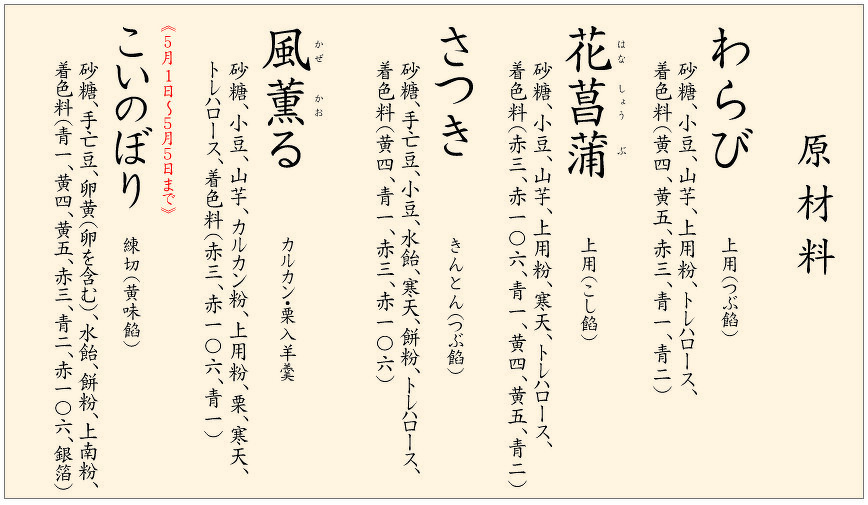 原材料
わらび
上用(つぶ餡)
砂糖、小豆、山芋、上用粉、トレハロース、
着色料(黄四、黄五、赤三、青一、青二)
花菖蒲
はなしょうぶ
上用(こし餡)
砂糖、小豆、山芋、上用粉、寒天、トレハロース、
着色料(赤三、赤一〇六、青一、黄四、黄五、青二)
さつき
きんとん(つぶ餡)
砂糖、手亡豆、小豆、水飴、寒天、餅粉、トレハロース、
着色料(黄四、青一、赤三、赤一〇六)
風薫る
かぜかお
カルカン・栗入羊羹
砂糖、小豆、山芋、カルカン粉、上用粉、栗、寒天、
トレハロース、着色料(赤三、赤一〇六、青一)
《5月1日～5月5日まで》
こいのぼり
練切(黄味餡)
砂糖、手亡豆、卵黄(卵を含む)、水飴、餅粉、上南粉、
着色料(青一、黄四、黄五、赤三、青二、赤一〇六、銀箔)